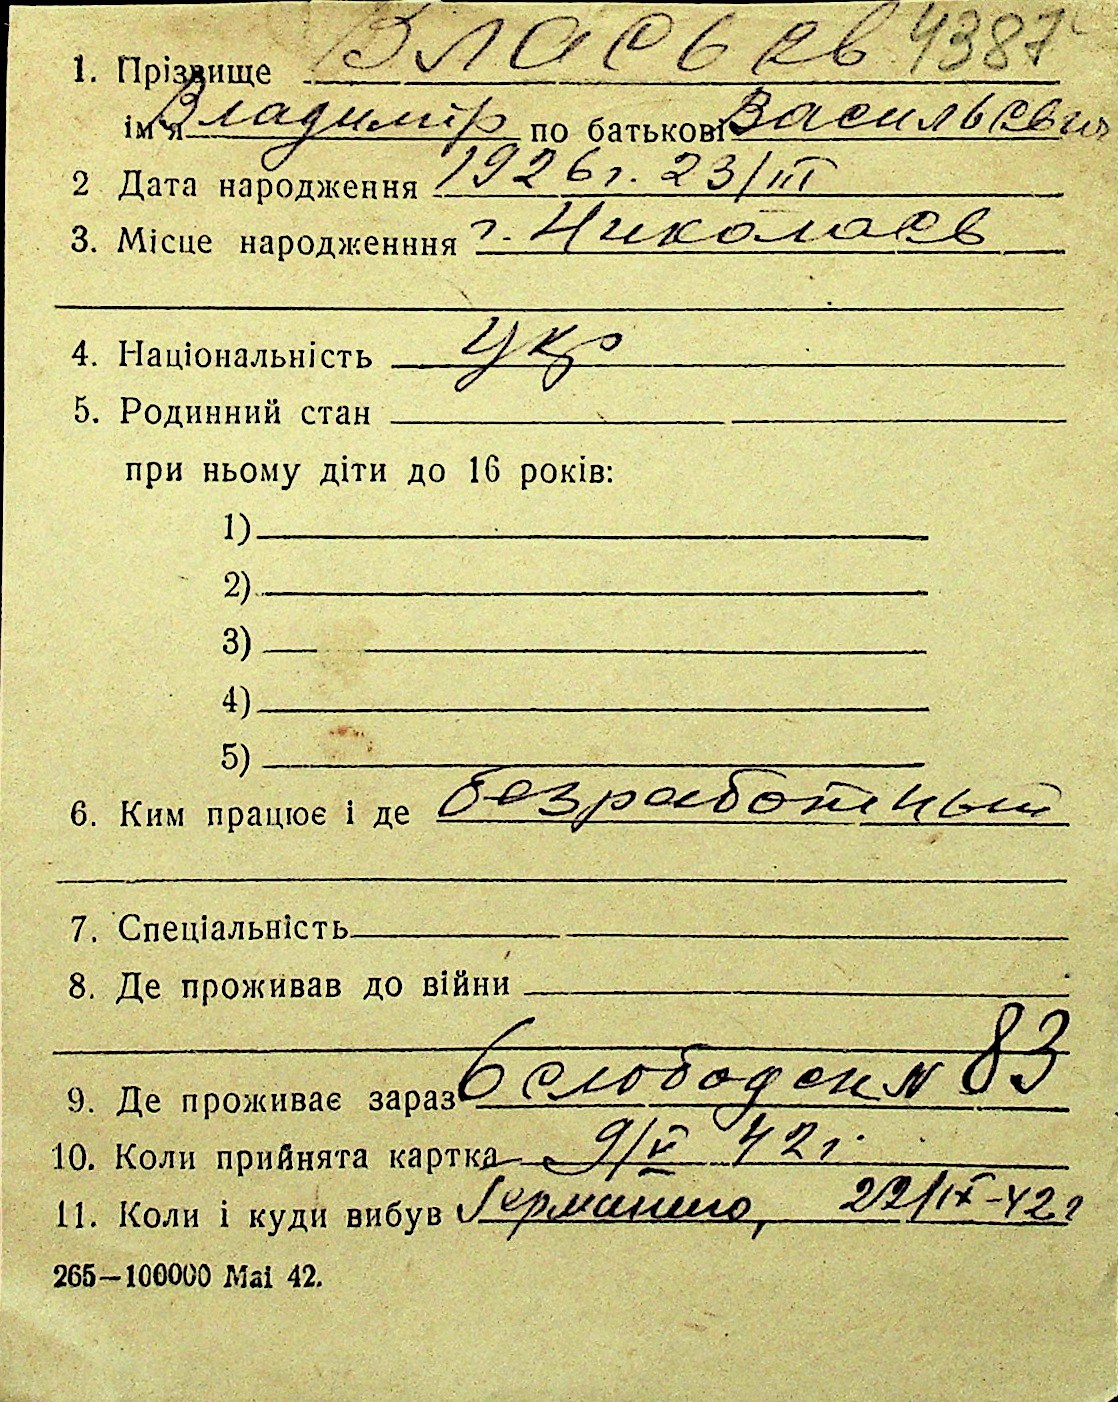 1. Прізвище Власьев 4387
ім'я Владимір по батькові Васильевич
2 Дата народження 1926 г. 23/III
3. Місце народженння г. Николаев
4. Національність укр
5. Родинний стан
при ньому діти до 16 років:
1)
2)
3)
4)
5)
6. Ким працює і де безработный
7. Спеціальність
8. Де проживав до війни
9. Де проживає зараз 6 слободск N 83
10. Коли прийнята картка 9/V 42 г.
11. Коли і куди вибув Германию, 22/IX-42 г
265—100000 Mai 42.